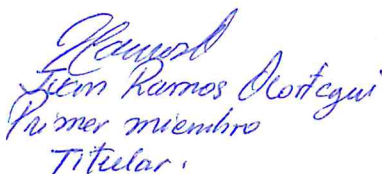 Juan Ramos Olortegui
Primer miembro
Titular.